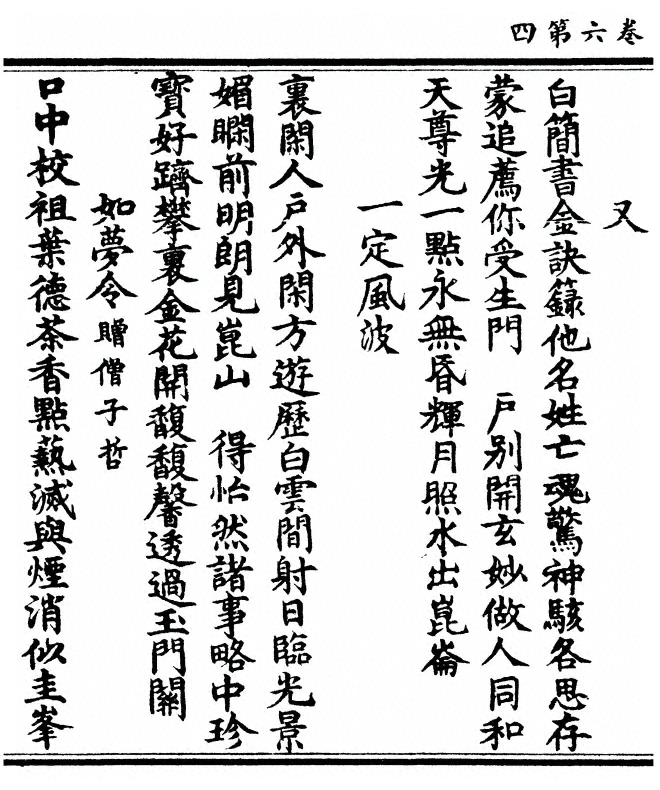 卷六第四
又
白簡書金訣籙他名姓亡魂驚神駭各思存
蒙追薦你受生門　戶別開玄妙做人同和
天尊光一點永無昏輝月照水出崑崙
一定風波
裏閑人戶外閑方遊歷白雲間射日臨光景
媚瞷前明朗見崑山　得怡然諸事略中珍
寶好躋攀裏金花開馥馥馨透過玉門關
如夢令贈僧子哲
口中校祖葉德茶香點爇滅與煙消似圭峯